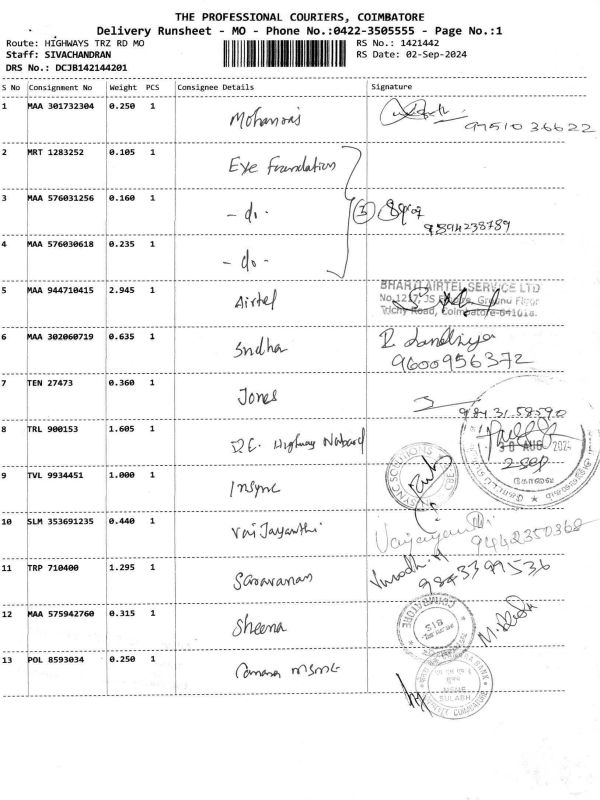 THE PROFESSIONAL COURIERS, COIMBATORE
Delivery Runsheet - MO - Phone No.:0422-3505555 - Page No.:1
Route: HIGHWAYS TRZ RD MO
Staff: SIVACHANDRAN
DRS No.: DCJB142144201
RS No.: 1421442
RS Date: 02-Sep-2024
S No Consignment No Weight PCS Consignee Details Signature
1 MAA 301732304 0.250 1 9751036622
2 MRT 1283252 0.105 1 Eye Foundation
3 MAA 576031256 0.160 1 - do - 3 9894238789
4 MAA 576030618 0.235 1 - do -
5 MAA 944710415 2.945 1 Airtel
BHARTI AIRTEL SERVICE LTD
Ground Floor
Trichy Road, Coimbatore-641018.
6 MAA 302060719 0.635 1 Sudha 9600956372
7 TEN 27473 0.360 1 Jones
98431 58590
8 TRL 900153 1.605 1 D.E. Highway Nabard
30 AUG 2024
2-Sep
கோவை
9 TVL 9934451 1.000 1 Insync
10 SLM 353691235 0.440 1 Vaijayanthi Vaijayanthi
9442350368
11 TRP 710400 1.295 1 Saravanan Vinodh. M
9843399536
12 MAA 575942760 0.315 1 Sheena
COIMBATORE
13 POL 8593034 0.250 1 Canara MSME
MSME
SULABH
COIMBATORE